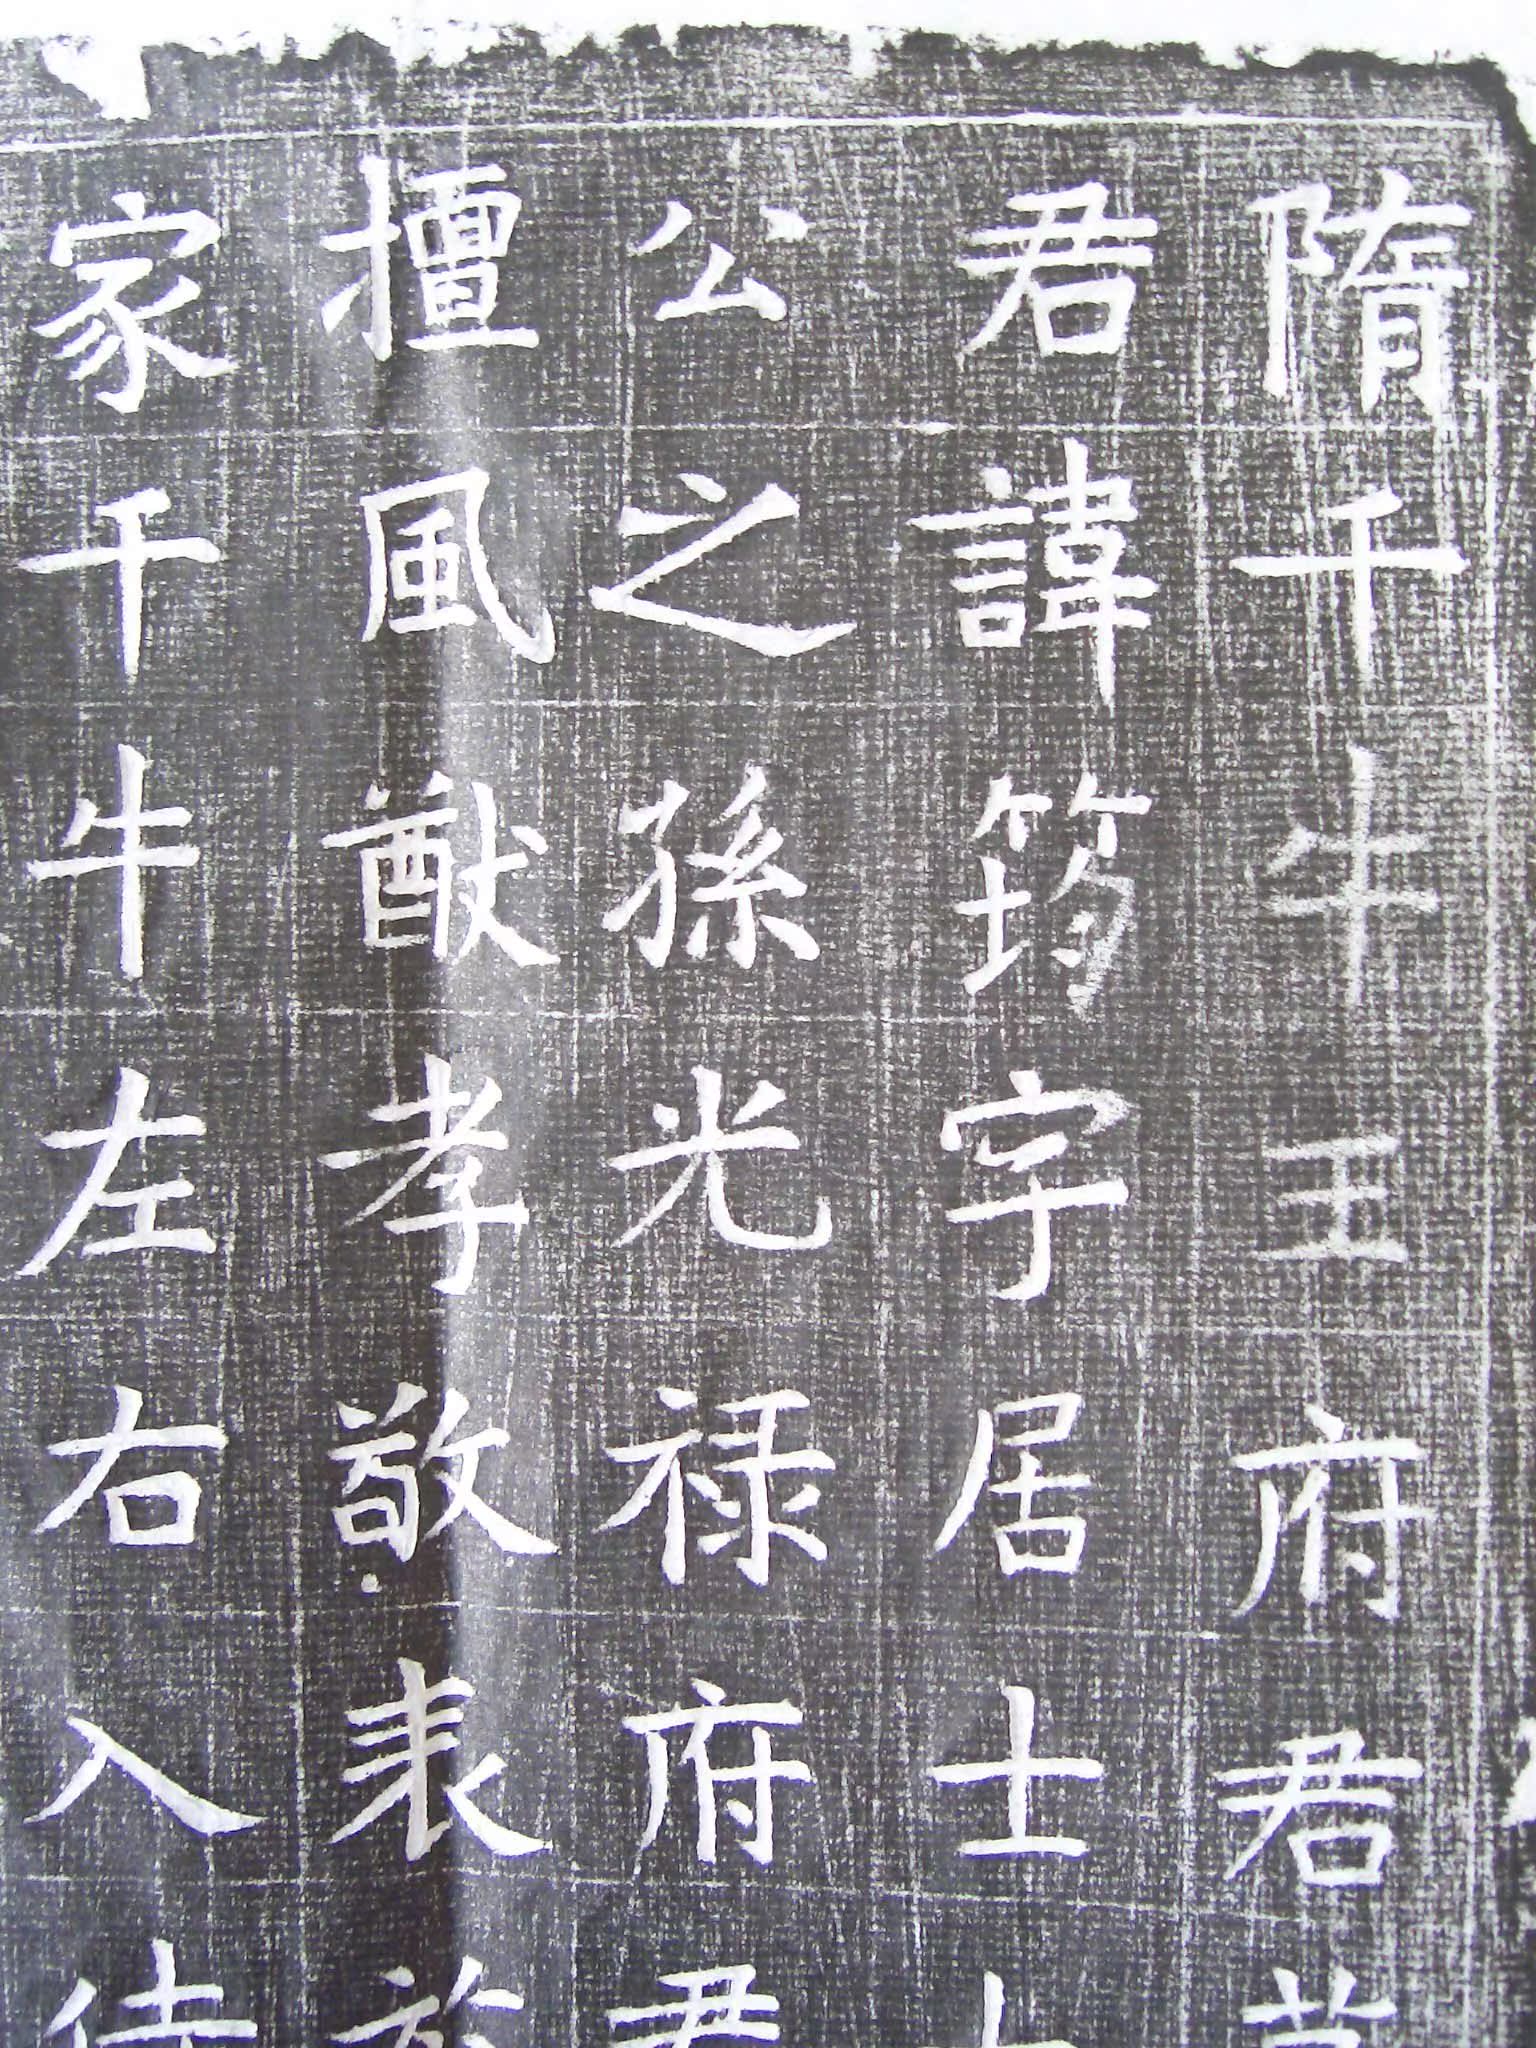 隋千牛王府君
君諱筠字居士
公之孫光祿府君
擅風猷孝敬表於
家千牛左右入侍